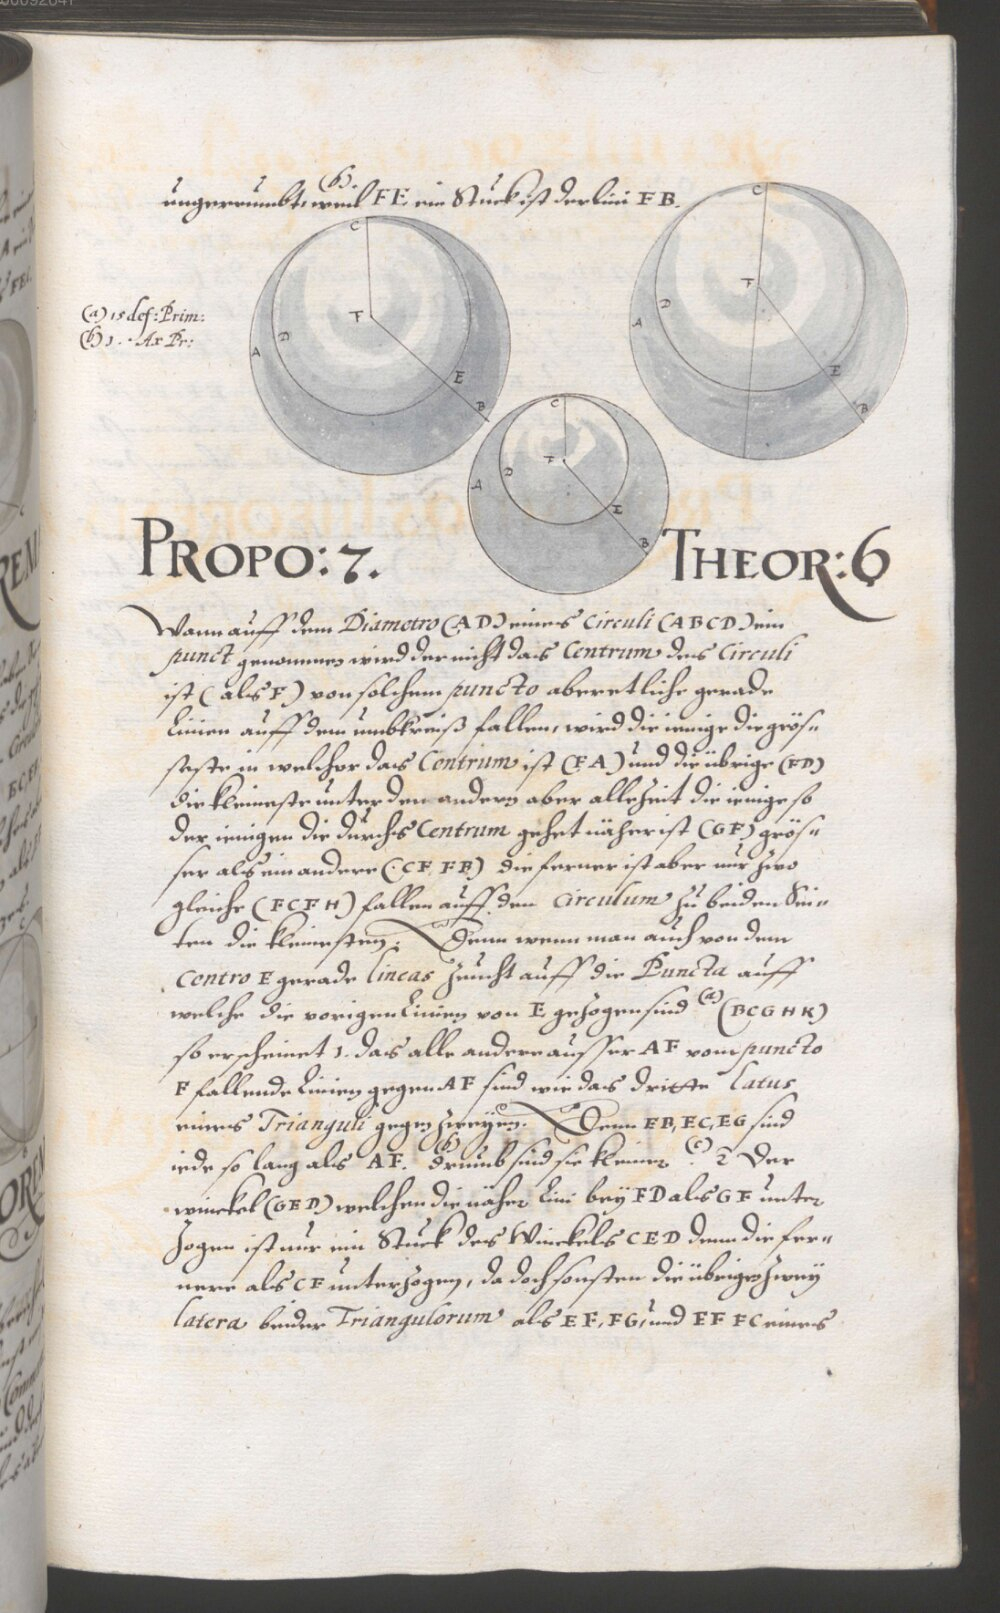 ungereumbt, weil (b). FE. ein Stuck ist der lini FB.
C
C
F
F
D
D
A
A
E
E
B
B
(a) 15 def: Prim:
(b) 1. Ax Pr:
C
F
D
A
E
B
PROPO: 7. THEOR: 6
Wann auff dem Diametro (AD) eines Circuli (ABCD) ein
punct genommen wird der nicht das Centrum des Circuli
ist (als F) von solchem puncto aber etliche gerade
Linien auff dem umbkreiß fallen, wird die ienige die grös„
seste in welcher das Centrum ist (FA) und die übrige (FD)
die kleineste unter den andern aber allezeit die ienige so
der ienigen die durchs Centrum gehet näher ist (GF) grös„
ser als ein andere (CF FB) die ferner ist aber nur zwo
gleiche (FC FH) fallen auff den Circulum zu beiden Sei„
ten die kleinesten. Denn wenn man auch von dem
Centro E gerade lineas zeucht auff die Puncta auff
welche die vorigen Linien von E gezogen sind (a) (BCGHK)
so erscheinet 1. das alle andere ausser AF vom puncto
F fallende Linien gegen AF sind wie das dritte latus
eines Trianguli gegen zweyen. Denn EB, EC, EG sind
iede so lang als AF. (b) drumb sind sie kleiner (c) 2 Der
winckel (GED) welchen die näher Lini bey FD als GF unter
zogen ist nur ein Stuck des Winckels CED denn die fer„
nere als CF unterzogen, da doch sonsten die übrigen zwey
latera beider Triangulorum als EF, FG, und EF FC eines